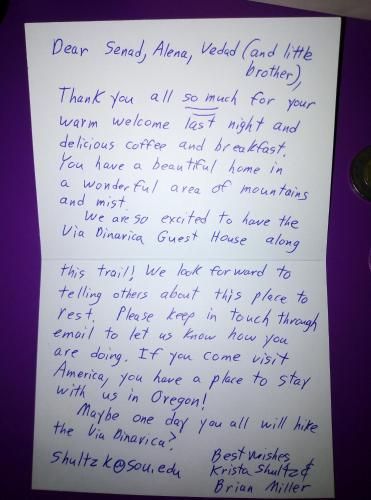 Dear Senad, Alena, Vedad (and little
brother),
Thank you all so much for your
warm welcome last night and
delicious coffee and breakfast.
You have a beautiful home in
a wonderful area of mountains
and mist.
We are so excited to have the
Via Dinarica Guest House along
this trail! We look forward to
telling others about this place to
rest. Please keep in touch through
email to let us know how you
are doing. If you come visit
America, you have a place to stay
with us in Oregon!
Maybe one day you all will hike
the Via Dinarica?
Shultzk@sou.edu
Best wishes
Krista Shultz &
Brian Miller